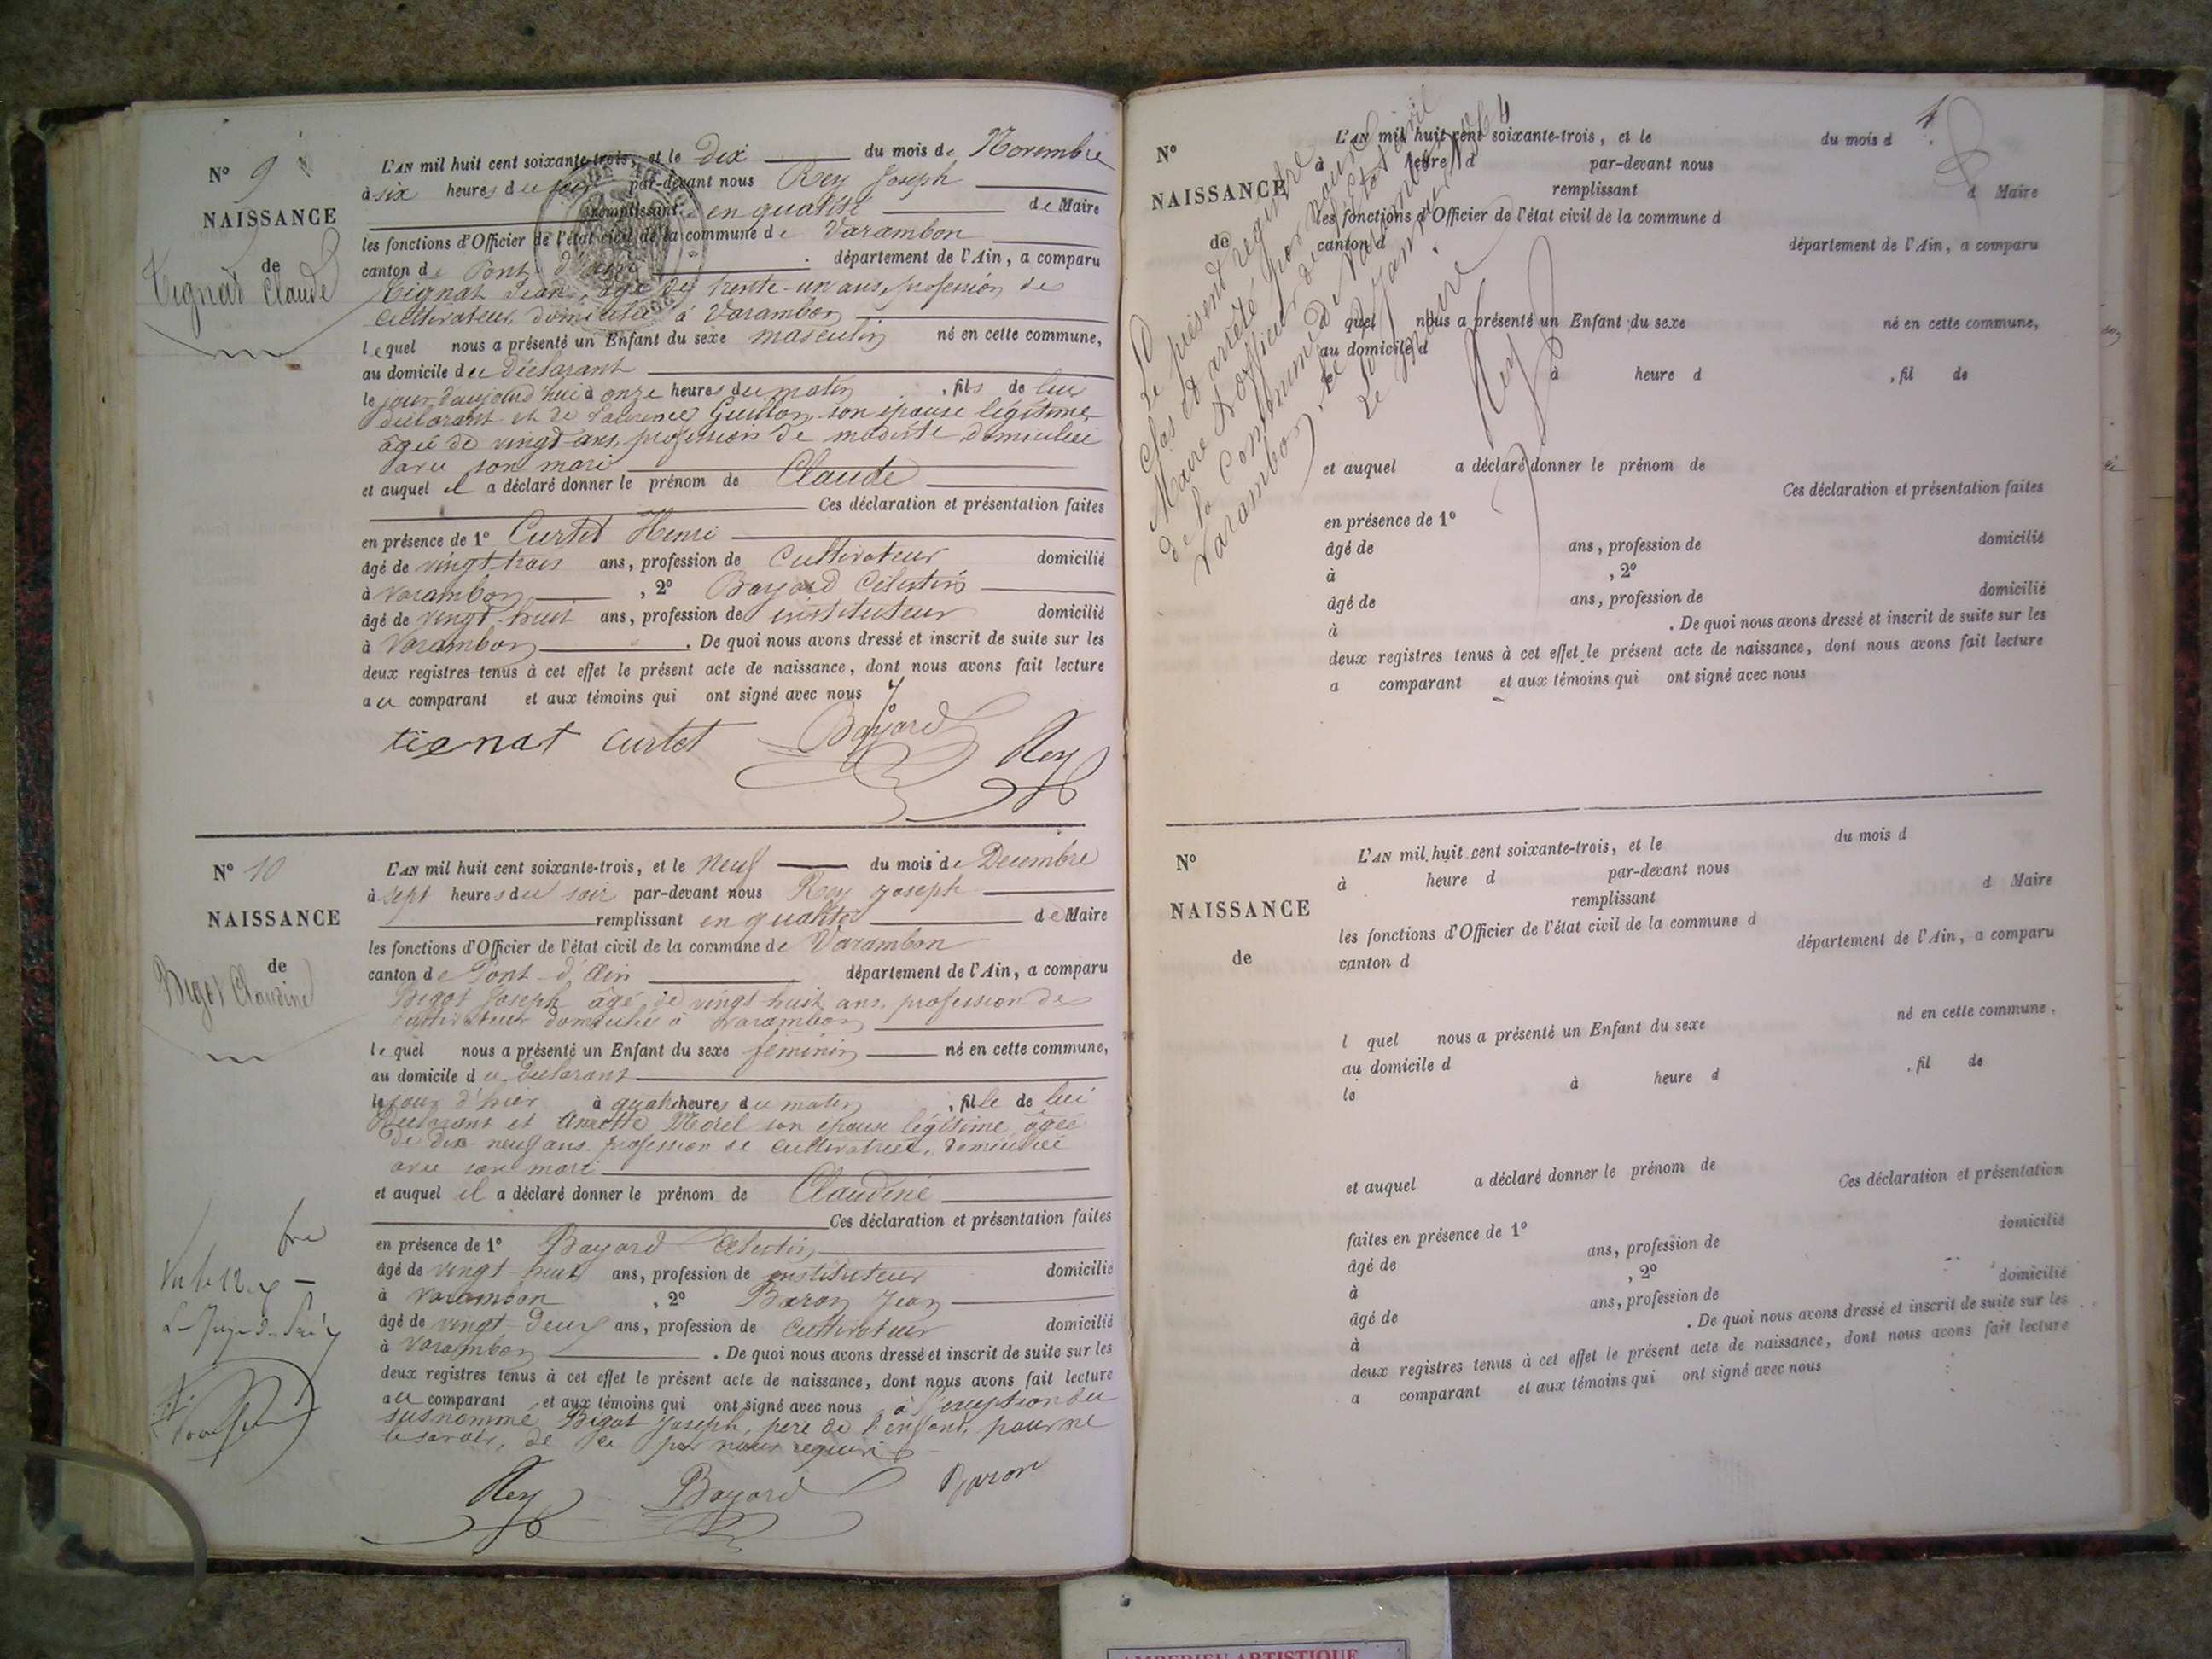 N° 9
NAISSANCE
de
Tignat Claude
L'AN mil huit cent soixante-trois, et le dix du mois de Novembre
à six heures du soir par-devant nous Rey Joseph
remplissant en qualité de Maire
les fonctions d'Officier de l'état civil de la commune de Varambon
canton de Pont-d'Ain département de l'Ain, a comparu
Tignat Jean, âgé de trente-un ans, profession de
cultivateur, domicilié à Varambon
lequel nous a présenté un Enfant du sexe masculin né en cette commune,
au domicile du déclarant
le jour d'aujourd'hui à onze heures du matin, fils de lui
déclarant et de Guillon son épouse légitime
âgée de vingt ans, profession de modiste domiciliée
avec son mari
et auquel il a déclaré donner le prénom de Claude
Ces déclaration et présentation faites
en présence de 1° Curtet Henri
âgé de vingt-trois ans, profession de Cultivateur domicilié
à Varambon, 2° Bayard Célestin
âgé de vingt-huit ans, profession de instituteur domicilié
à Varambon. De quoi nous avons dressé et inscrit de suite sur les
deux registres tenus à cet effet le présent acte de naissance, dont nous avons fait lecture
au comparant et aux témoins qui ont signé avec nous
tignat curtet Bayard Rey
N° 10
NAISSANCE
de
Bigot Claudine
L'AN mil huit cent soixante-trois, et le neuf du mois de Decembre
à sept heures du soir par-devant nous Rey Joseph
remplissant en qualité de Maire
les fonctions d'Officier de l'état civil de la commune de Varambon
canton de Pont-d'Ain département de l'Ain, a comparu
Bigot Joseph âgé de vingt-huit ans, profession de
cultivateur domicilié à Varambon
lequel nous a présenté un Enfant du sexe féminin né en cette commune,
au domicile du déclarant
le jour d'hier à quatre heures du matin, fille de lui
déclarant et Annette Morel son épouse légitime, âgée
de dix-neuf ans, profession de cultivatrice, domiciliée
avec son mari
et auquel il a déclaré donner le prénom de Claudine
Ces déclaration et présentation faites
en présence de 1° Bayard Célestin
âgé de vingt-huit ans, profession de instituteur domicilié
à Varambon, 2° Baron Jean
âgé de vingt-deux ans, profession de Cultivateur domicilié
à Varambon. De quoi nous avons dressé et inscrit de suite sur les
deux registres tenus à cet effet le présent acte de naissance, dont nous avons fait lecture
au comparant et aux témoins qui ont signé avec nous à l'exception du
susnommé Bigot Joseph, père de l'enfant, pour ne
le savoir, de ce par nous requis
Rey Bayard Baron
4
N°
NAISSANCE
de
L'AN mil huit cent soixante-trois, et le du mois d
à heure d par-devant nous
remplissant d Maire
les fonctions d'Officier de l'état civil de la commune d
canton d département de l'Ain, a comparu
l quel nous a présenté un Enfant du sexe né en cette commune,
au domicile d
le à heure d , fil de
et auquel a déclaré donner le prénom de
Ces déclaration et présentation faites
en présence de 1°
âgé de ans, profession de domicilié
à , 2°
âgé de ans, profession de domicilié
à . De quoi nous avons dressé et inscrit de suite sur les
deux registres tenus à cet effet le présent acte de naissance, dont nous avons fait lecture
a comparant et aux témoins qui ont signé avec nous
Le présent registre
clos et arrêté par nous
Maire et officier de l'état civil
de la Commune de Varambon
Varambon, le janvier 1864
Le Maire
Rey
N°
NAISSANCE
de
L'AN mil huit cent soixante-trois, et le du mois d
à heure d par-devant nous
remplissant d Maire
les fonctions d'Officier de l'état civil de la commune d
canton d département de l'Ain, a comparu
l quel nous a présenté un Enfant du sexe né en cette commune,
au domicile d
le à heure d , fil de
et auquel a déclaré donner le prénom de
Ces déclaration et présentation
faites en présence de 1°
âgé de ans, profession de domicilié
à , 2°
âgé de ans, profession de domicilié
à . De quoi nous avons dressé et inscrit de suite sur les
deux registres tenus à cet effet le présent acte de naissance, dont nous avons fait lecture
a comparant et aux témoins qui ont signé avec nous
AMBERIEU ARTISTIQUE